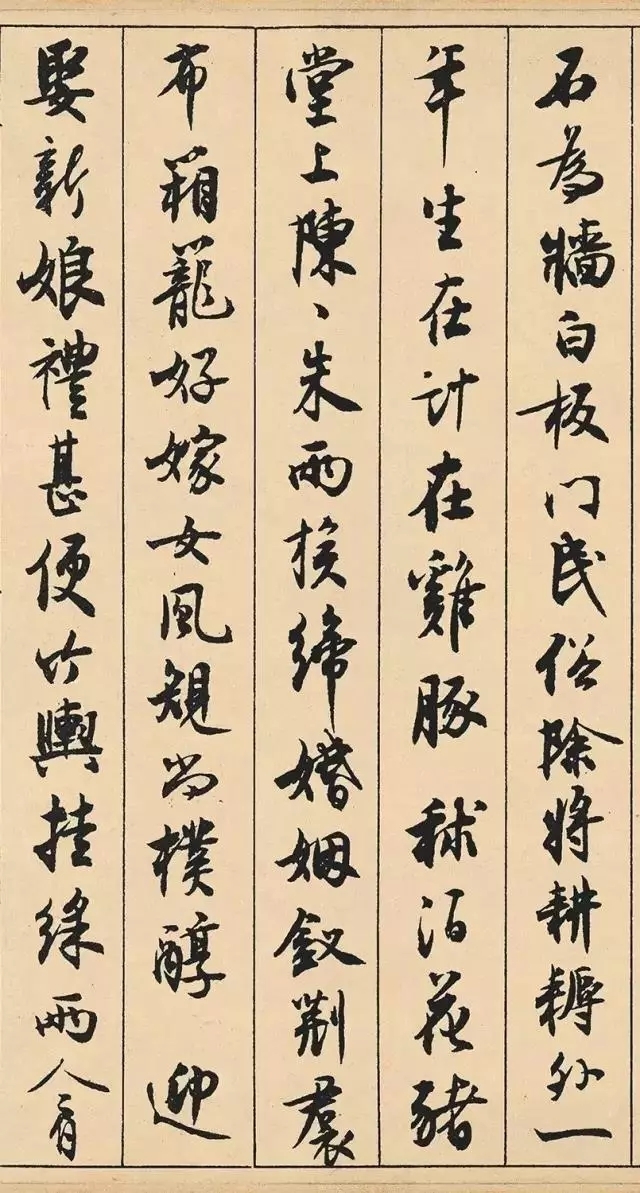 石為牆白板门民俗除將耕耨外一
年生在计在雞豚秫酒花豬
堂上陳丶朱兩挨締婚姻釵荆裠
布箱籠好嫁女風規尚樸醇迎
娶新娘禮甚便竹輿挂綵兩人肩